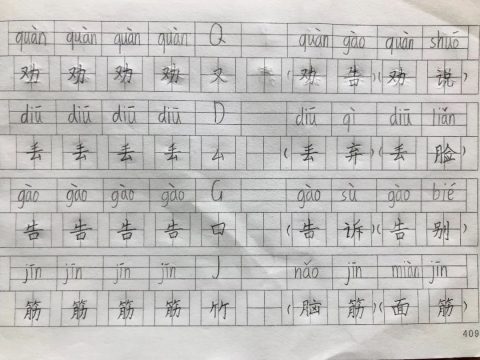 quàn quàn quàn quàn Q quàn gào quàn shuō
劝 劝 劝 劝 又 (劝 告)(劝 说
diū diū diū diū D diū qì diū liǎn
丢 丢 丢 丢 厶 (丢 弃)(丢 脸
gào gào gào gào G gào sù gào bié
告 告 告 告 口 (告 诉)(告 别
jīn jīn jīn jīn J nǎo jīn miàn jīn
筋 筋 筋 筋 竹 (脑 筋)(面 筋
409